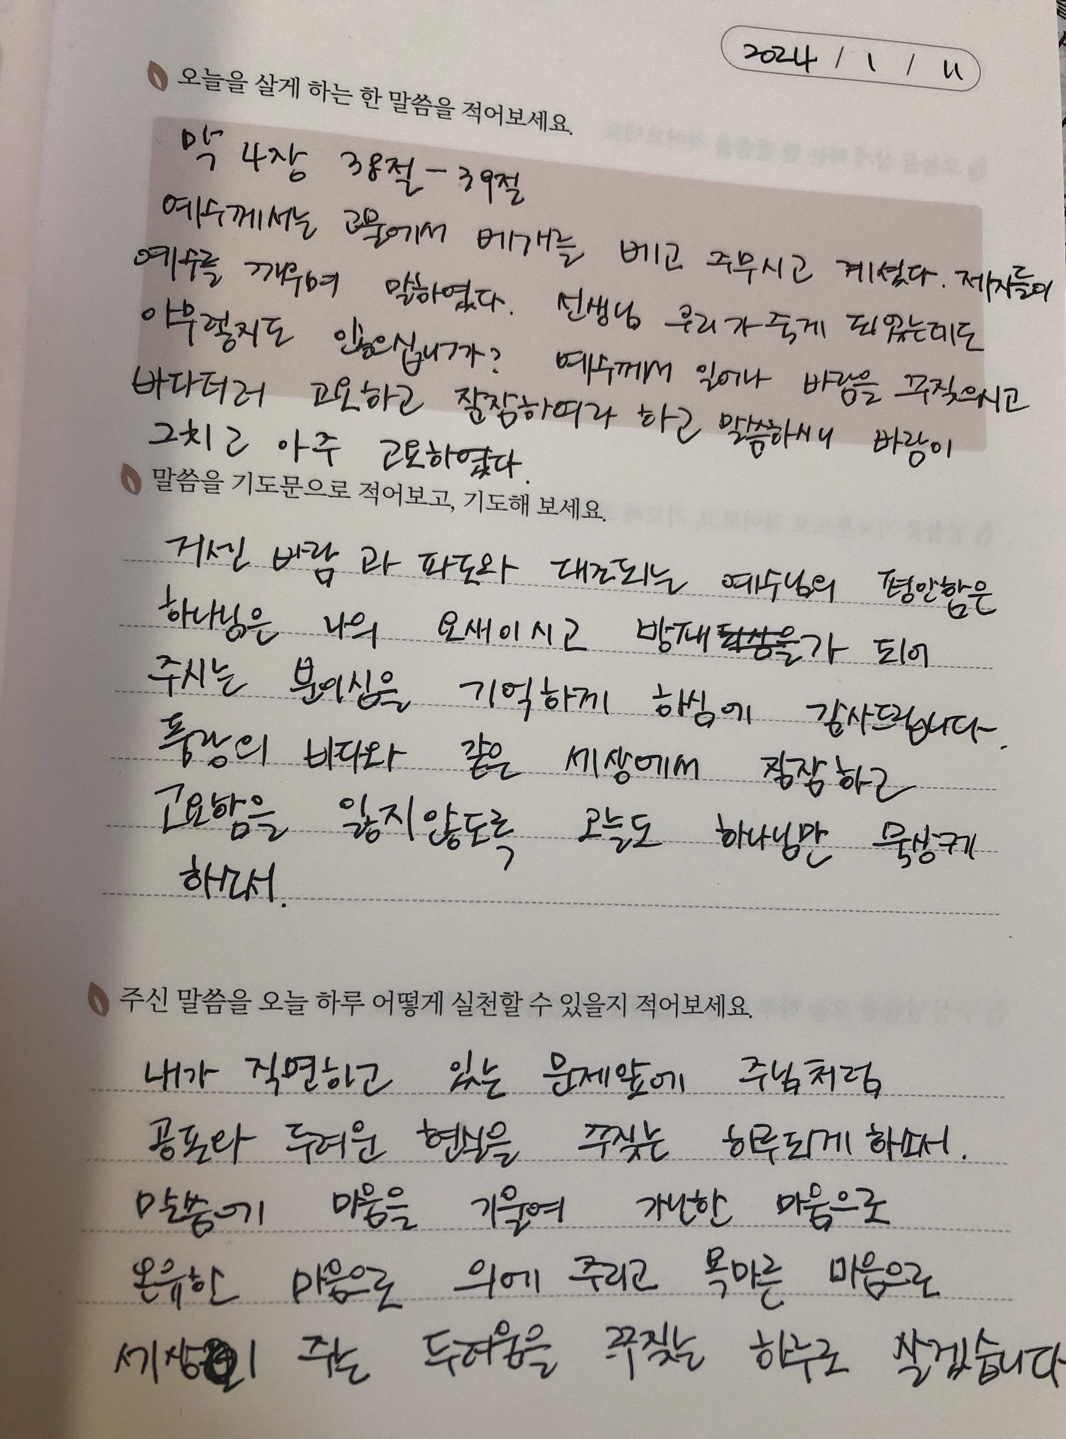 2024 / 1 / 11
오늘을 살게 하는 한 말씀을 적어보세요.
막 4장 38절 - 39절
예수께서는 고물에서 베개를 베고 주무시고 계셨다. 제자들이
예수를 깨우며 말하였다. 선생님 우리가 죽게 되었는데도
아무렇지도 않으십니까? 예수께서 일어나 바람을 꾸짖으시고
바다더러 고요하고 잠잠하여라 하고 말씀하시니 바람이
그치고 아주 고요하였다.
말씀을 기도문으로 적어보고, 기도해 보세요.
거센 바람과 파도와 대조되는 예수님의 평안함은
하나님은 나의 요새이시고 방패가 되어
주시는 분이심을 기억하게 하심에 감사드립니다.
풍랑의 바다와 같은 세상에서 잠잠하고
고요함을 잃지않도록 오늘도 하나님만 묵상케
하소서.
주신 말씀을 오늘 하루 어떻게 실천할 수 있을지 적어보세요.
내가 직면하고 있는 문제앞에 주님처럼
공포와 두려운 현실을 꾸짖는 하루되게 하소서.
말씀에 마음을 기울여 가난한 마음으로
온유한 마음으로 의에 주리고 목마른 마음으로
세상이 주는 두려움을 꾸짖는 하루로 살겠습니다